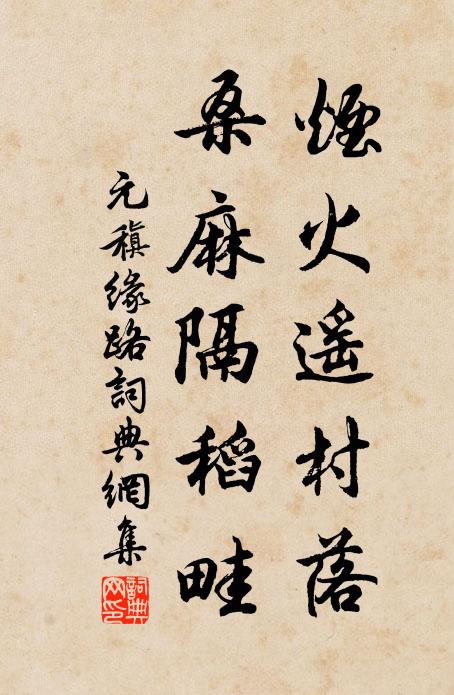 煙火遥村落
桑麻隔稻畦
元稹緣路詞典網集
詞典网印